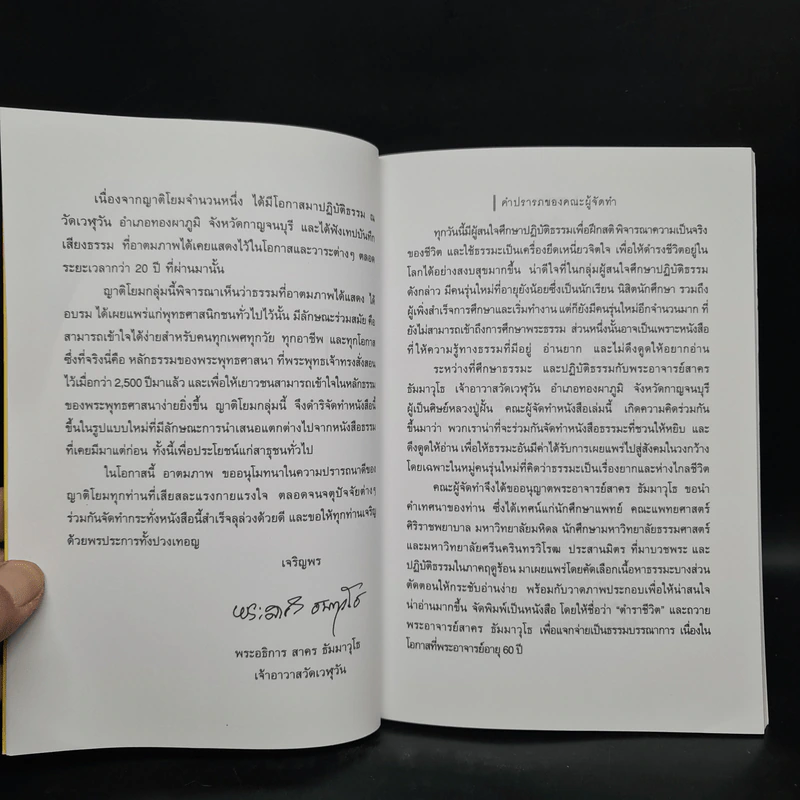 เนื่องจากญาติโยมจำนวนหนึ่ง ได้มีโอกาสมาปฏิบัติธรรม ณ
วัดเวฬุวัน อำเภอทองผาภูมิ จังหวัดกาญจนบุรี และได้ฟังเทปบันทึก
เสียงธรรม ที่อาตมภาพได้เคยแสดงไว้ในโอกาสและวาระต่างๆ ตลอด
ระยะเวลากว่า 20 ปี ที่ผ่านมานั้น
ญาติโยมกลุ่มนี้พิจารณาเห็นว่าธรรมที่อาตมภาพได้แสดง ได้
อบรม ได้เผยแพร่แก่พุทธศาสนิกชนทั่วไปไว้นั้น มีลักษณะร่วมสมัย คือ
สามารถเข้าใจได้ง่ายสำหรับคนทุกเพศทุกวัย ทุกอาชีพ และทุกโอกาส
ซึ่งที่จริงนี่คือ หลักธรรมของพระพุทธศาสนา ที่พระพุทธเจ้าทรงสั่งสอน
ไว้เมื่อกว่า 2,500 ปีมาแล้ว และเพื่อให้เยาวชนสามารถเข้าใจในหลักธรรม
ของพระพุทธศาสนาง่ายยิ่งขึ้น ญาติโยมกลุ่มนี้ จึงดำริจัดทำหนังสือนี้
ขึ้นในรูปแบบใหม่ที่มีลักษณะการนำเสนอแตกต่างไปจากหนังสือธรรม
ที่เคยมีมาแต่ก่อน ทั้งนี้เพื่อประโยชน์แก่สาธุชนทั่วไป
ในโอกาสนี้ อาตมภาพ ขออนุโมทนาในความปรารถนาดีของ
ญาติโยมทุกท่านที่เสียสละแรงกายแรงใจ ตลอดจนจตุปัจจัยต่างๆ
ร่วมกันจัดทำกระทั่งหนังสือนี้สำเร็จลุล่วงด้วยดี และขอให้ทุกท่านเจริญ
ด้วยพรประการทั้งปวงเทอญ
เจริญพร
พระสาคร ธมฺมาวุโธ
พระอธิการ สาคร ธัมมาวุโธ
เจ้าอาวาสวัดเวฬุวัน
คำปรารภของคณะผู้จัดทำ
ทุกวันนี้มีผู้สนใจศึกษาปฏิบัติธรรมเพื่อฝึกสติ พิจารณาความเป็นจริง
ของชีวิต และใช้ธรรมะเป็นเครื่องยึดเหนี่ยวจิตใจ เพื่อให้ดำรงชีวิตอยู่ใน
โลกได้อย่างสงบสุขมากขึ้น น่าดีใจที่ในกลุ่มผู้สนใจศึกษาปฏิบัติธรรม
ดังกล่าว มีคนรุ่นใหม่ที่อายุยังน้อยซึ่งเป็นนักเรียน นิสิตนักศึกษา รวมถึง
ผู้เพิ่งสำเร็จการศึกษาและเริ่มทำงาน แต่ก็ยังมีคนรุ่นใหม่อีกจำนวนมาก ที่
ยังไม่สามารถเข้าถึงการศึกษาพระธรรม ส่วนหนึ่งนั้นอาจเป็นเพราะหนังสือ
ที่ให้ความรู้ทางธรรมที่มีอยู่ อ่านยาก และไม่ดึงดูดให้อยากอ่าน
ระหว่างที่ศึกษาธรรมะ และปฏิบัติธรรมกับพระอาจารย์สาคร
ธัมมาวุโธ เจ้าอาวาสวัดเวฬุวัน อำเภอทองผาภูมิ จังหวัดกาญจนบุรี
ผู้เป็นศิษย์หลวงปู่ฝั้น คณะผู้จัดทำหนังสือเล่มนี้ เกิดความคิดร่วมกัน
ขึ้นมาว่า พวกเราน่าที่จะร่วมกันจัดทำหนังสือธรรมะที่ชวนให้หยิบ และ
ดึงดูดให้อ่าน เพื่อให้ธรรมะอันมีค่าได้รับการเผยแพร่ไปสู่สังคมในวงกว้าง
โดยเฉพาะในหมู่คนรุ่นใหม่ที่คิดว่าธรรมะเป็นเรื่องยากและห่างไกลชีวิต
คณะผู้จัดทำจึงได้ขออนุญาตพระอาจารย์สาคร ธัมมาวุโธ ขอนำ
คำเทศนาของท่าน ซึ่งได้เทศน์แก่นักศึกษาแพทย์ คณะแพทยศาสตร์
ศิริราชพยาบาล มหาวิทยาลัยมหิดล นักศึกษามหาวิทยาลัยธรรมศาสตร์
และมหาวิทยาลัยศรีนครินทรวิโรฒ ประสานมิตร ที่มาบวชพระ และ
ปฏิบัติธรรมในภาคฤดูร้อน มาเผยแพร่โดยคัดเลือกเนื้อหาธรรมะบางส่วน
ตัดตอนให้กระชับอ่านง่าย พร้อมกับวาดภาพประกอบเพื่อให้น่าสนใจ
น่าอ่านมากขึ้น จัดพิมพ์เป็นหนังสือ โดยให้ชื่อว่า "ตำราชีวิต" และถวาย
พระอาจารย์สาคร ธัมมาวุโธ เพื่อแจกจ่ายเป็นธรรมบรรณาการ เนื่องใน
โอกาสที่พระอาจารย์อายุ 60 ปี